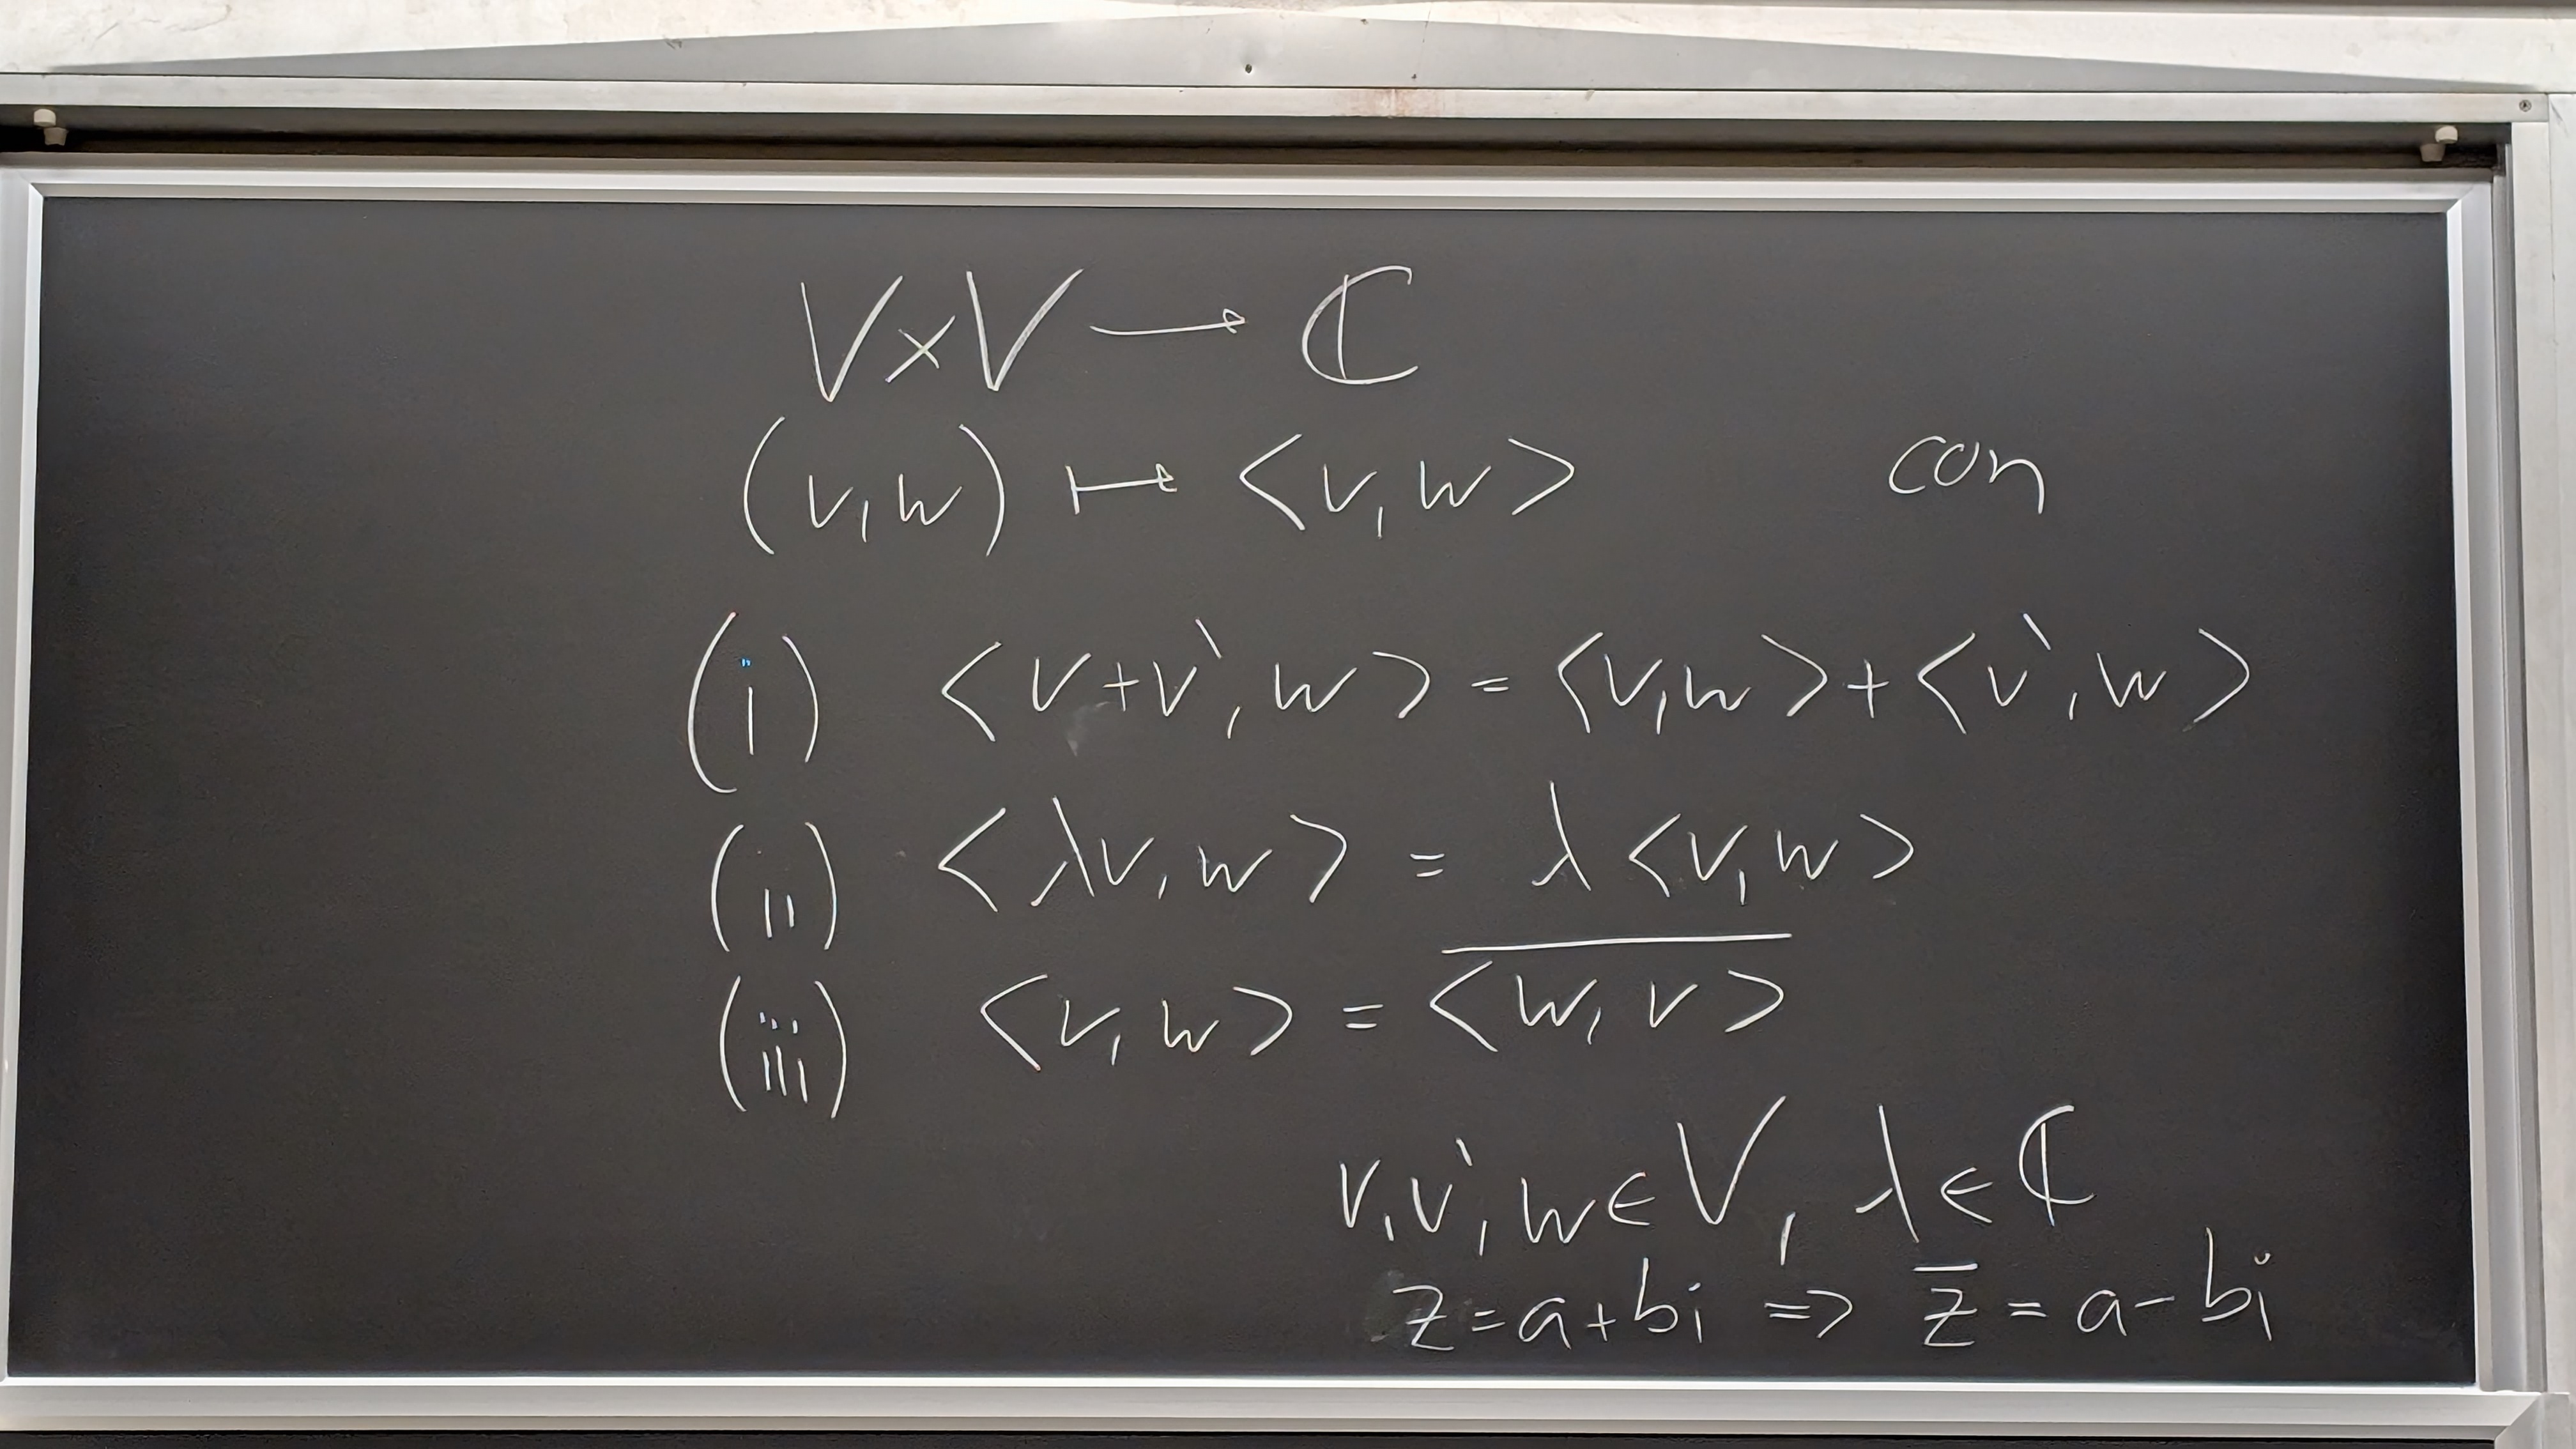 V×V → ℂ
(v,w) ↦ <v,w> con
(i) <v+v`,w> = <v,w>+<v`,w>
(ii) <λv,w> = λ<v,w>
(iii) <v,w> = \overline{<w,v>}
v,v`,w∈V, λ∈ℂ
z=a+bi => z̅=a-bi